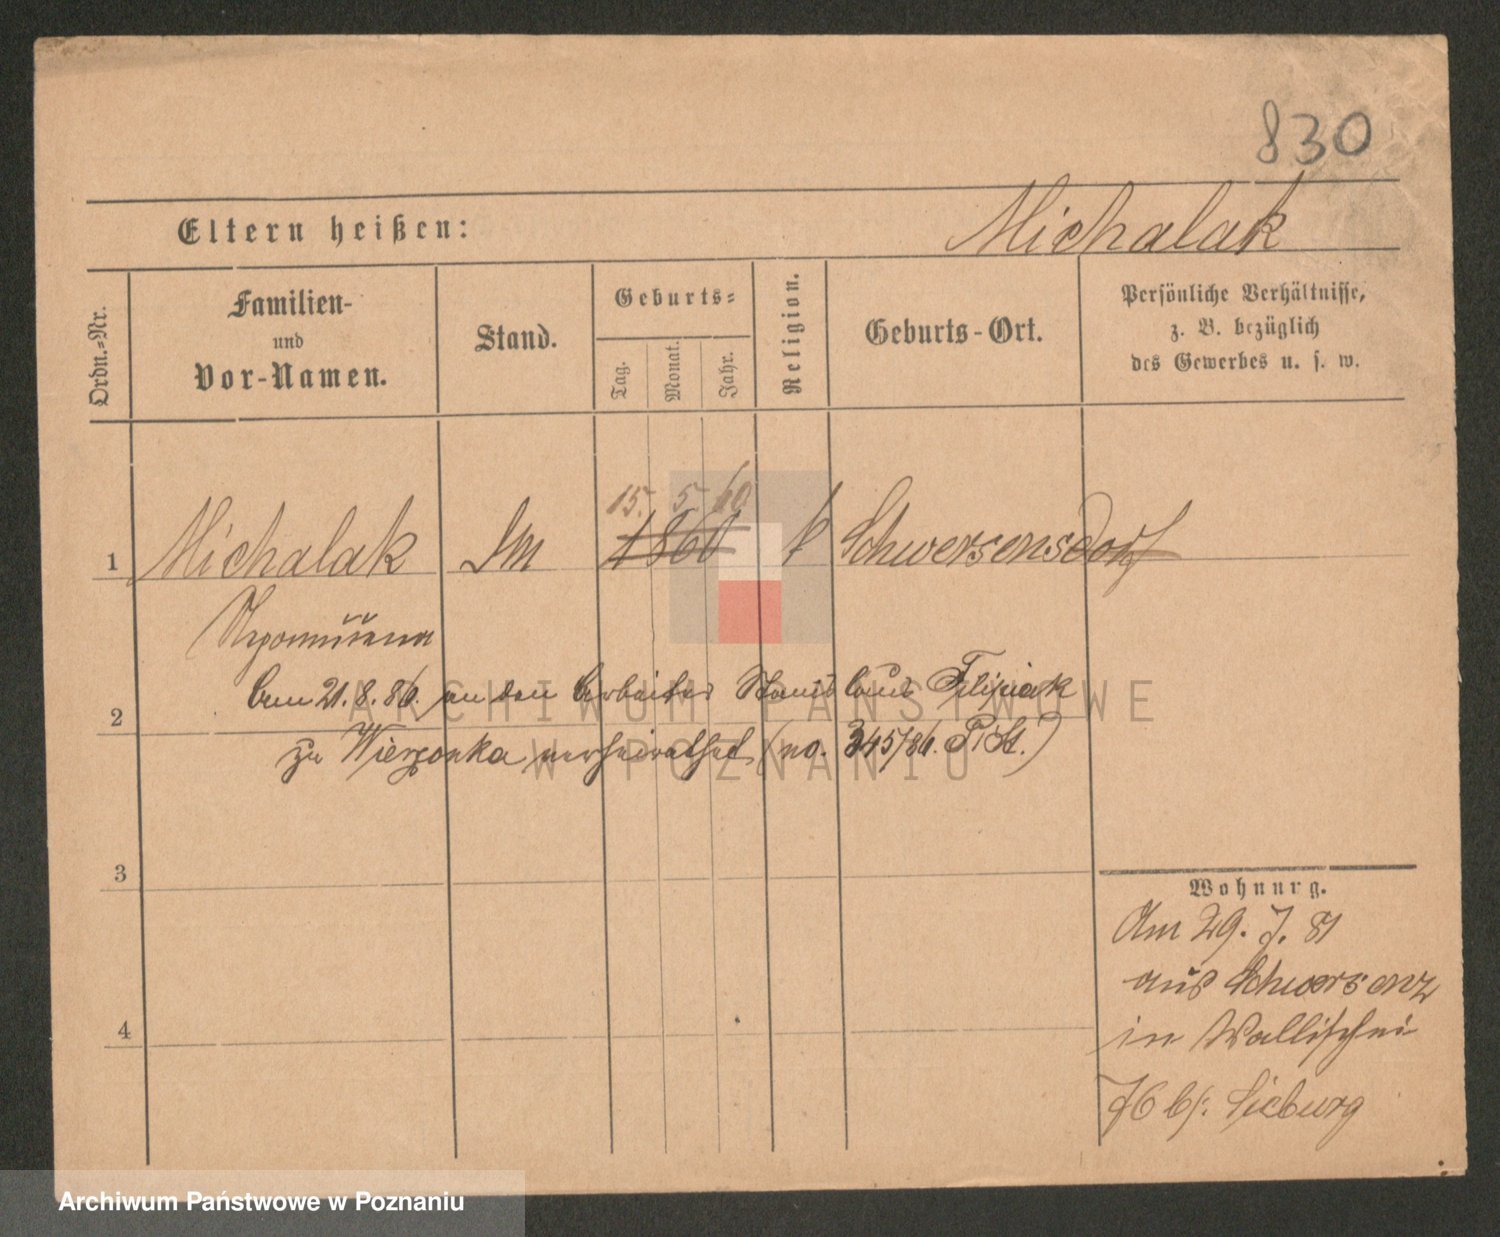 830
Eltern heißen: Michalak
Ordn.-Nr.
Familien-
und
Vor-Namen.
Stand.
Geburts-
Tag.
Monat.
Jahr.
Religion.
Geburts-Ort.
Persönliche Verhältnisse,
z. B. bezüglich
des Gewerbes u. s. w.
15. 5. 60
1 Michalak 1860 k Schwersensdorf
Nepomucena
21. 8. 86. an den Arbeiter Stanislaus Filipiak
2
zu Wierzonka verheirathet (no. 345/86. P. St.)
3
4
Wohnung.
Am 29. 7. 81
aus Schwersenz
in Wallischei
76 b/: Sieburg
ARCHIWUM PAŃSTWOWE
W POZNANIU
Archiwum Państwowe w Poznaniu